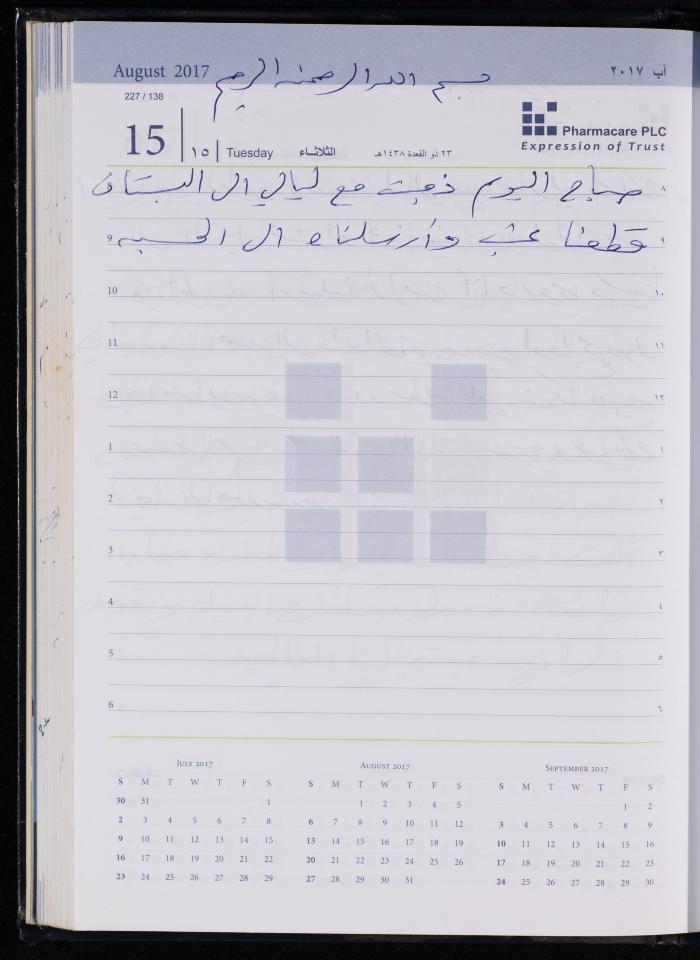 August 2017 بسم الله الرحمن الرحيم آب ٢٠١٧
227 / 138
15 ١٥ Tuesday الثلاثاء ٢٣ ذو القعدة ١٤٣٨هـ
Pharmacare PLC
Expression of Trust
صباح اليوم ذهبت مع ليالي الى البستان ٨
9 قطفنا عنب وأرسلناه الى الحسبه ٩
10 ١٠
11 ١١
12 ١٢
1 ١
2 ٢
3 ٣
4 ٤
5 ٥
6 ٦
July 2017
S M T W T F S
30 31 1
2 3 4 5 6 7 8
9 10 11 12 13 14 15
16 17 18 19 20 21 22
23 24 25 26 27 28 29
August 2017
S M T W T F S
1 2 3 4 5
6 7 8 9 10 11 12
13 14 15 16 17 18 19
20 21 22 23 24 25 26
27 28 29 30 31
September 2017
S M T W T F S
1 2
3 4 5 6 7 8 9
10 11 12 13 14 15 16
17 18 19 20 21 22 23
24 25 26 27 28 29 30